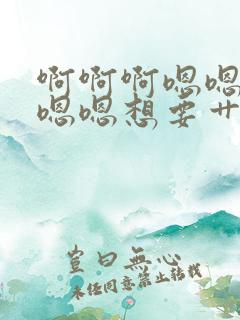 啊啊啊嗯嗯
嗯嗯想要艹
豈曰無心
未经同意禁止转载